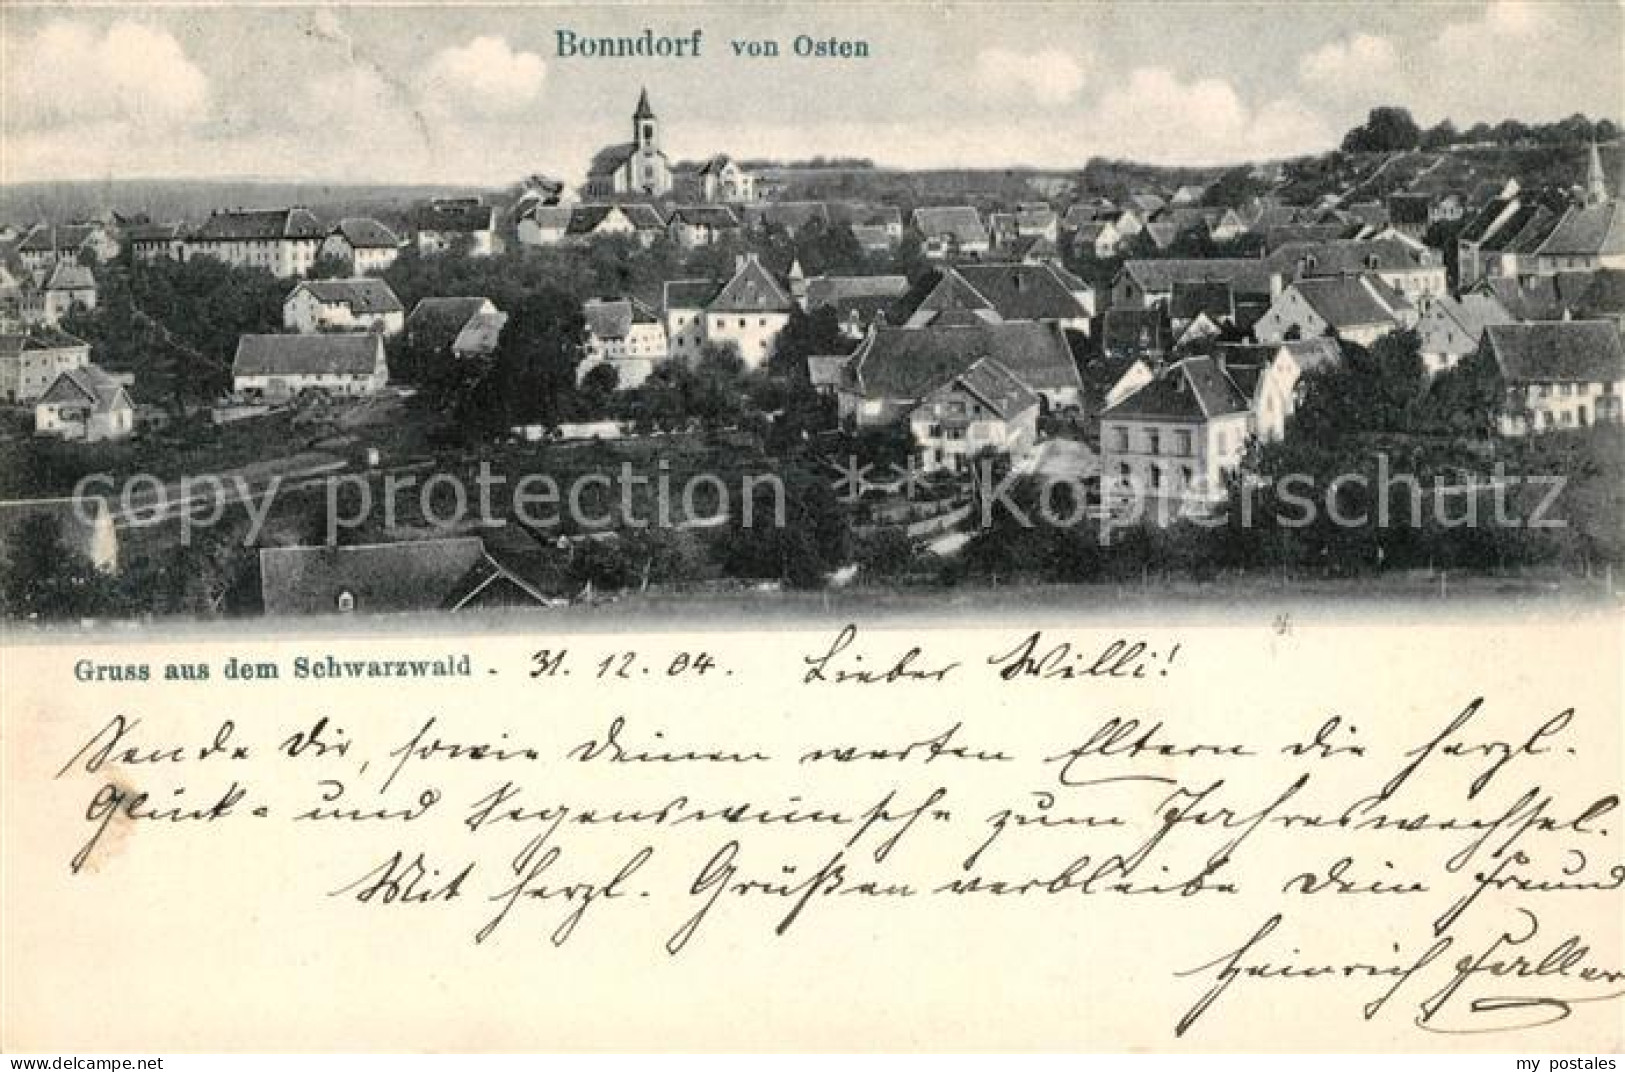 Bonndorf von Osten
copy protection ** Kopierschutz
Gruss aus dem Schwarzwald. 31. 12. 04. Lieber Willi!
Sende Dir, sowie Deinen werten Eltern die herzl.
Glück- und Segenswünsche zum Jahreswechsel.
Mit herzl. Grüßen verbleibe Dein Freund
Heinrich Faller
www.delcampe.net
my_postales